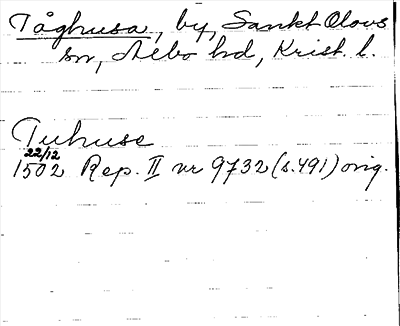 Tåghusa, by, Sankt Olovs
sn, Albo hd, Krist. l.
Tuhuse
22/12
1502 Rep. II nr 9732 (s. 491) orig.